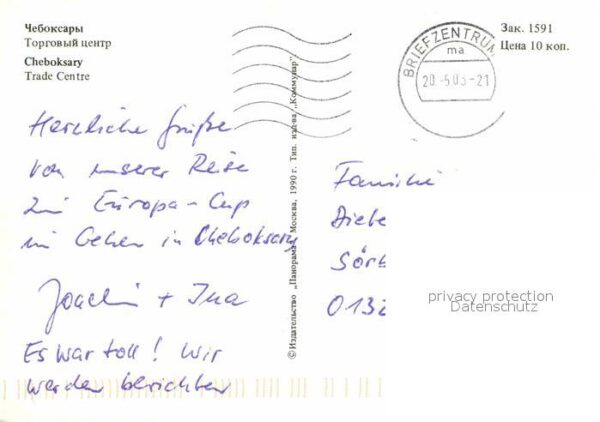 Чебоксары
Торговый центр
Cheboksary
Trade Centre
Зак. 1591
Цена 10 коп.
BRIEFZENTRUM
ma
20.-5.03-21
Herzliche Grüße
von unserer Reise
zum Europa-Cup
im Gehen in Cheboksary
Joachim + Ina
Es war toll! Wir
werden berichten
© Издательство „Панорама“. Москва. 1990 г. Тип. изд-ва „Коммунар“
Familie
Diebe
Sörb
0132
privacy protection
Datenschutz